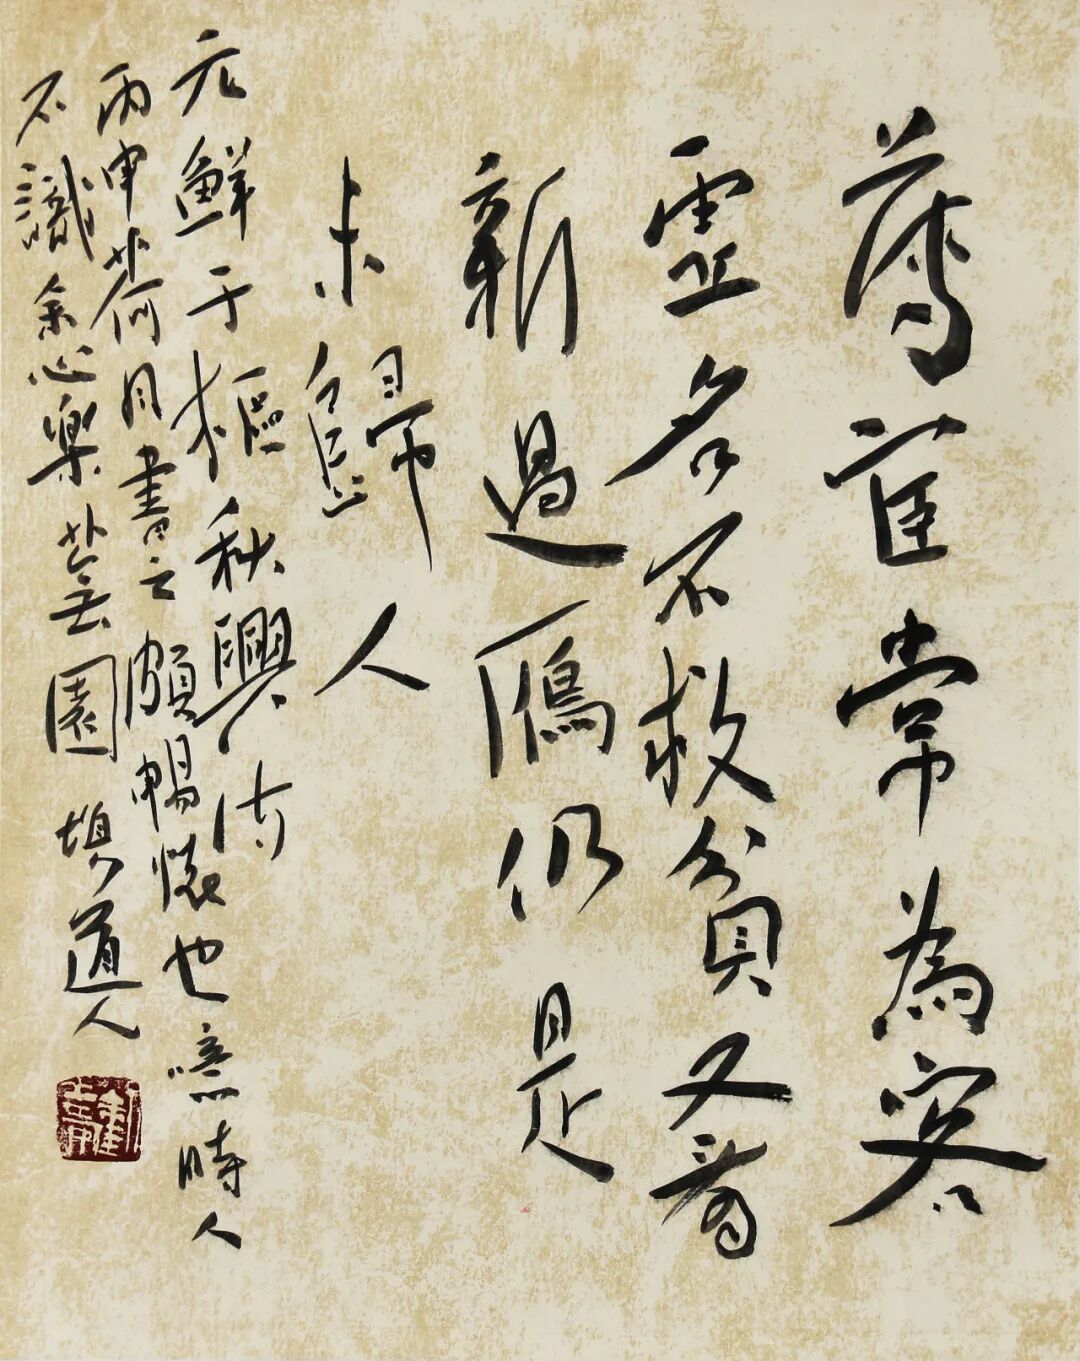 薄宦常為客
虛名不救貧又看
新過鴈仍是
未歸人
元鮮于樞秋興詩
丙申荷月書之頗暢懷也噫時人
不識余心樂芸園道人